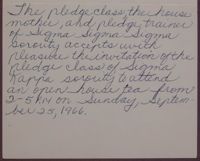 The pledge class, the house
mother, and pledge trainer
of Sigma Sigma Sigma
sorority accepts with
pleasure the invitation of the
pledge class of Sigma
Kappa sorority to attend
an open house tea from
2-5 P.M. on Sunday, Septem-
ber 25, 1966.